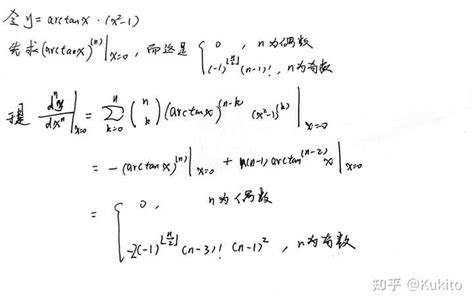 令 y = arctanx · (x²-1)
先求 (arctanx)^{(n)}|_{x=0}, 而这是 { 0, n为偶数
(-1)^{⌊n/2⌋}(n-1)!, n为奇数
于是 d^n y/dx^n |_{x=0} = Σ_{k=0}^{n} (n k) (arctanx)^{(n-k)} (x²-1)^{(k)} |_{x=0}
= -(arctanx)^{(n)}|_{x=0} + n(n-1) arctan^{(n-2)}x|_{x=0}
= { 0, n为偶数
-2(-1)^{⌊n/2⌋} (n-3)! (n-1)², n为奇数
知乎 @Kukito